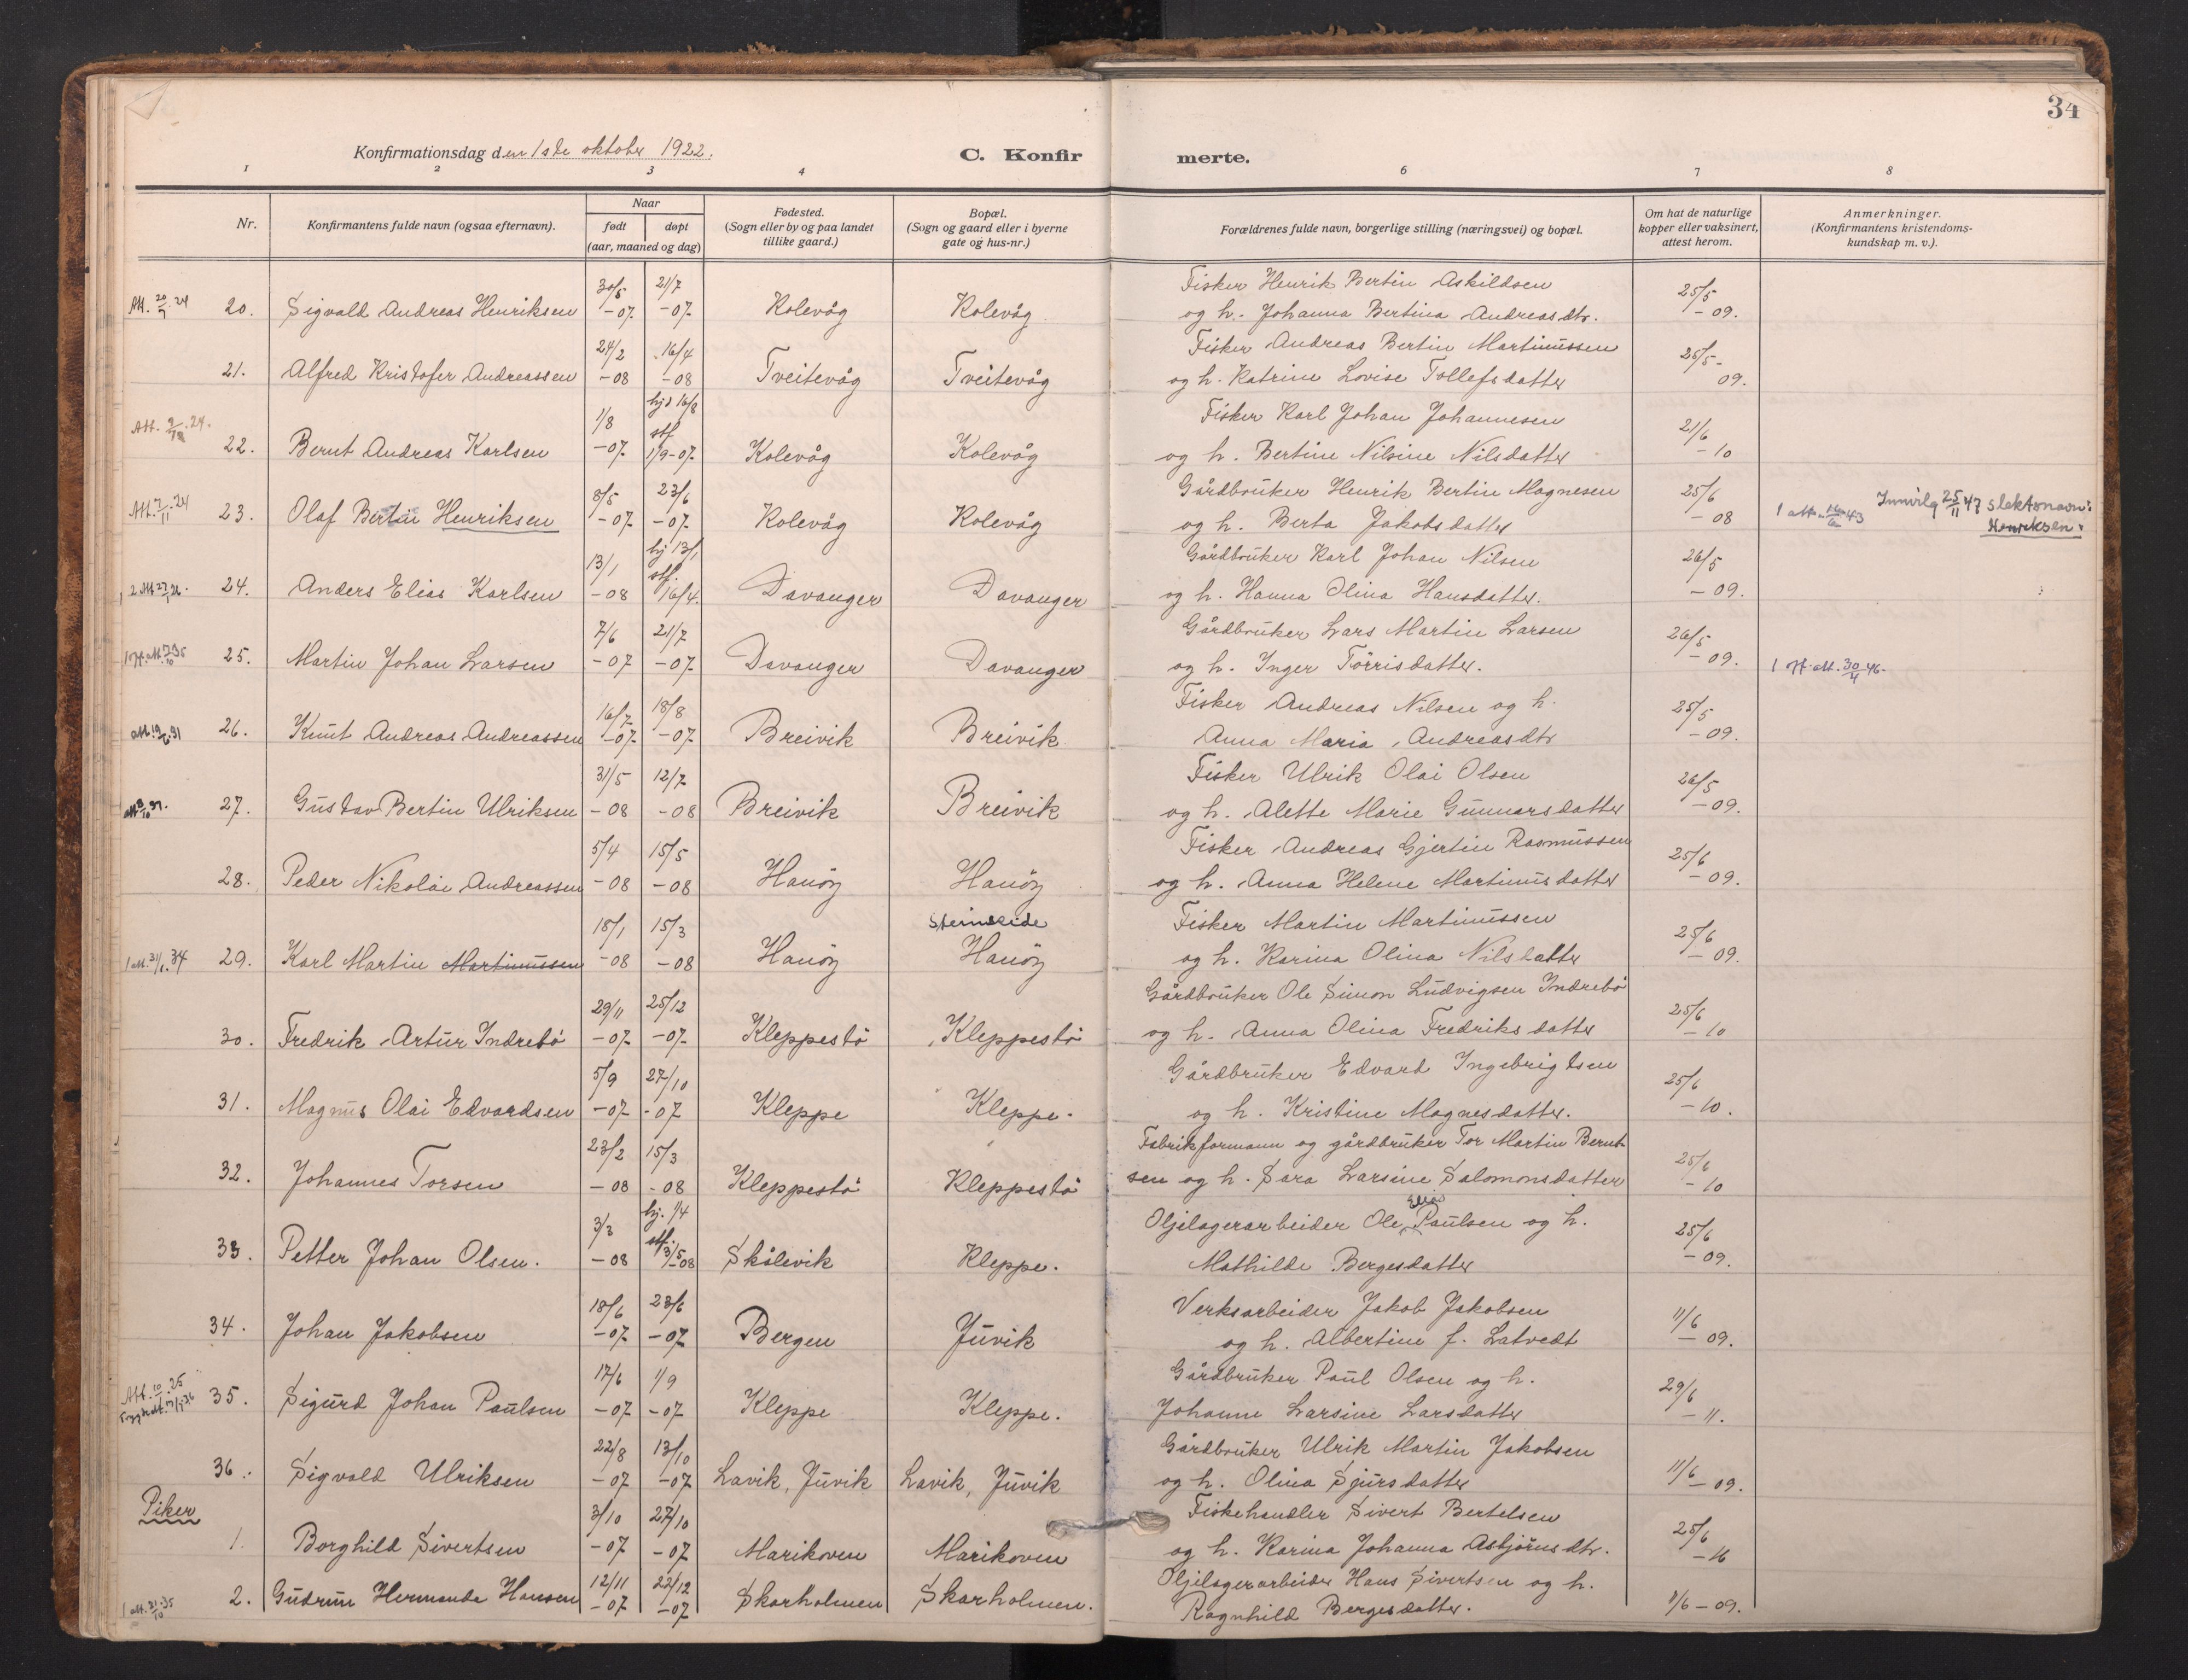 34
Konfirmationsdag den 1ste oktober 1922.
C. Konfir
merte.
1 2 3 4 6 7 8
Nr.
Konfirmantens fulde navn (ogsaa efternavn).
Naar
født
døpt
(aar, maaned og dag)
Fødested.
(Sogn eller by og paa landet
tillike gaard.)
Bopæl.
(Sogn og gaard eller i byerne
gate og hus-nr.)
Forældrenes fulde navn, borgerlige stilling (næringsvei) og bopæl.
Om hat de naturlige
kopper eller vaksinert,
attest herom.
Anmerkninger.
(Konfirmantens kristendoms-
kundskap m. v.).
30/5 21/7 Fisker Henrik Bertin Askildsen 25/5
20. Sigvald Andreas Henriksen -07. -07. Kolevåg Kolevåg og h. Johanna Bertina Andreasdtr. -09.
24/2 16/4 Fisker Andreas Bertin Martinussen 25/5-
21. Alfred Kristofer Andreassen -08 -08 Tveitevåg Tveitevåg og h. Katrine Lovise Tollefsdatter 09.
1/8 hjd 16/8 stf. Fisker Karl Johan Johannesen 21/6
22. Bernt Andreas Karlsen -07. 1/9-07. Kolevåg Kolevåg og h. Bertine Nilsine Nilsdatter -10
Att. 7/11.24 8/5 23/6 Gårdbruker Henrik Bertin Magnesen 25/6 Innvilg 25/11 47 slektsnavn:
23. Olaf Bertin Henriksen -07. -07. Kolevåg Kolevåg og h. Berta Jakobsdatter -08 Henriksen.
13/1 hj 13/1 stf. Gårdbruker Karl Johan Nilsen 26/5
24. Anders Elias Karlsen -08 16/4. Davanger Davanger og h. Hanna Olina Hansdatter. -09.
7/6 21/7 Gårdbruker Lars Martin Larsen 26/5
25. Martin Johan Larsen -07 -07. Davanger Davanger og h. Inger Törrisdatter. -09. 1 ff. att. 30/4 46.
16/7 18/8 Fisker Andreas Nilsen og h. 25/5
26. Knut Andreas Andreassen -07. -07. Breivik Breivik Anna Maria Andreasdtr -09.
31/5 12/7 Fisker Ulrik Olai Olsen 26/5
27. Gustav Bertin Ulriksen -08 -08 Breivik Breivik og h. Alette Marie Gunnarsdatter -09.
5/4 15/5 Fisker Andreas Gjertin Rasmussen 25/6
28. Peder Nikolai Andreassen -08 -08 Hanöy Hanöy og h. Anna Helene Martinusdatter -09.
18/1 15/3 Steinseide Fisker Martin Martinussen 25/6
1 att. 31/1.34 29. Karl Martin Martinussen -08 -08 Hanöy Hanöy og h. Karina Olina Nilsdatter -09.
29/11 25/12 Gårdbruker Ole Simon Ludvigsen Indrebö 25/6
30. Fredrik Artur Indrebö -07. -07. Kleppestö Kleppestö og h. Anna Olina Fredriksdatter -10
5/9 27/10 Gårdbruker Edvard Ingebrigtsen 25/6
31. Magnus Olai Edvardsen -07. -07 Kleppe Kleppe. og h. Kristine Magnesdatter. -10.
23/2 15/3 Fabrikformann og gårdbruker Tor Martin Bernt- 25/6
32. Johannes Torsen -08 -08 Kleppestö Kleppestö sen og h. Sara Larsine Salomonsdatter -10
3/3 hj. 1/4 stf. Oljelagerarbeider Ole Elias Paulsen og h. 25/6
33. Petter Johan Olsen. -08 3/5-08 Skålevik Kleppe. Mathilde Bergesdatter -09.
18/6 23/6 Verksarbeider Jakob Jakobsen 11/6
34. Johan Jakobsen -07. -07 Bergen Juvik og h. Albertine f. Latvedt -09.
17/6 1/9 Gårdbruker Paul Olsen og h. 29/6
35. Sigurd Johan Paulsen -07 -07 Kleppe Kleppe. Johanne Larsine Larsdatter -11.
22/8 13/10 Gårdbruker Ulrik Martin Jakobsen 11/6
36. Sigvald Ulriksen -07 -07 Lavik, Juvik Lavik, Juvik og h. Olina Sjursdatter -09.
Piker
3/10 27/10 Fiskehandler Sivert Bertelsen 25/6
1. Borghild Sivertsen -07 -07 Marikoven Marikoven og h. Karina Johanna Asbjörnsdtr.
12/11 22/12 Oljelagerarbeider Hans Sivertsen og h.
2. Gudrun Hermanda Hansen -07 -07 Skarholmen Skarholmen. Ragnhild Bergesdatter. 11/6-09.